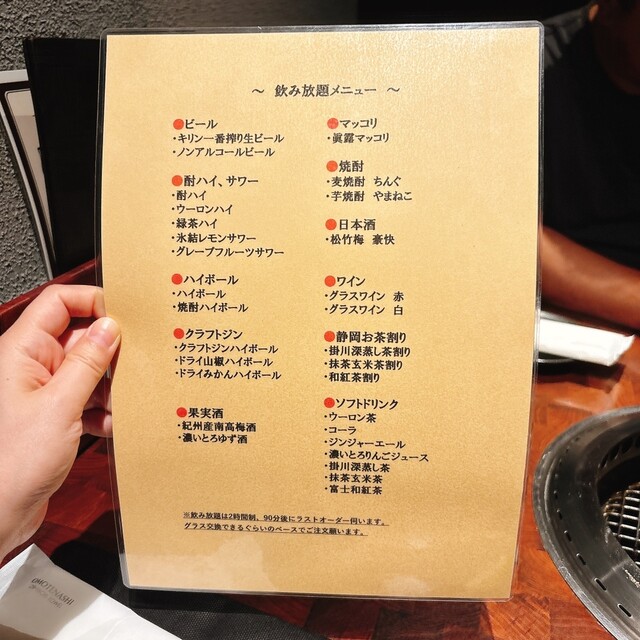 ～ 飲み放題メニュー ～
●ビール
・キリン一番搾り生ビール
・ノンアルコールビール
●酎ハイ、サワー
・酎ハイ
・ウーロンハイ
・緑茶ハイ
・氷結レモンサワー
・グレープフルーツサワー
●ハイボール
・ハイボール
・焼酎ハイボール
●クラフトジン
・クラフトジンハイボール
・ドライ山椒ハイボール
・ドライみかんハイボール
●果実酒
・紀州産南高梅酒
・濃いとろゆず酒
●マッコリ
・眞露マッコリ
●焼酎
・麦焼酎 ちんぐ
・芋焼酎 やまねこ
●日本酒
・松竹梅 豪快
●ワイン
・グラスワイン 赤
・グラスワイン 白
●静岡お茶割り
・掛川深蒸し茶割り
・抹茶玄米茶割り
・和紅茶割り
●ソフトドリンク
・ウーロン茶
・コーラ
・ジンジャーエール
・濃いとろりんごジュース
・掛川深蒸し茶
・抹茶玄米茶
・富士和紅茶
※飲み放題は2時間制、90分後にラストオーダー伺います。
グラス交換できるぐらいのペースでご注文願います。
OMOTENASHI